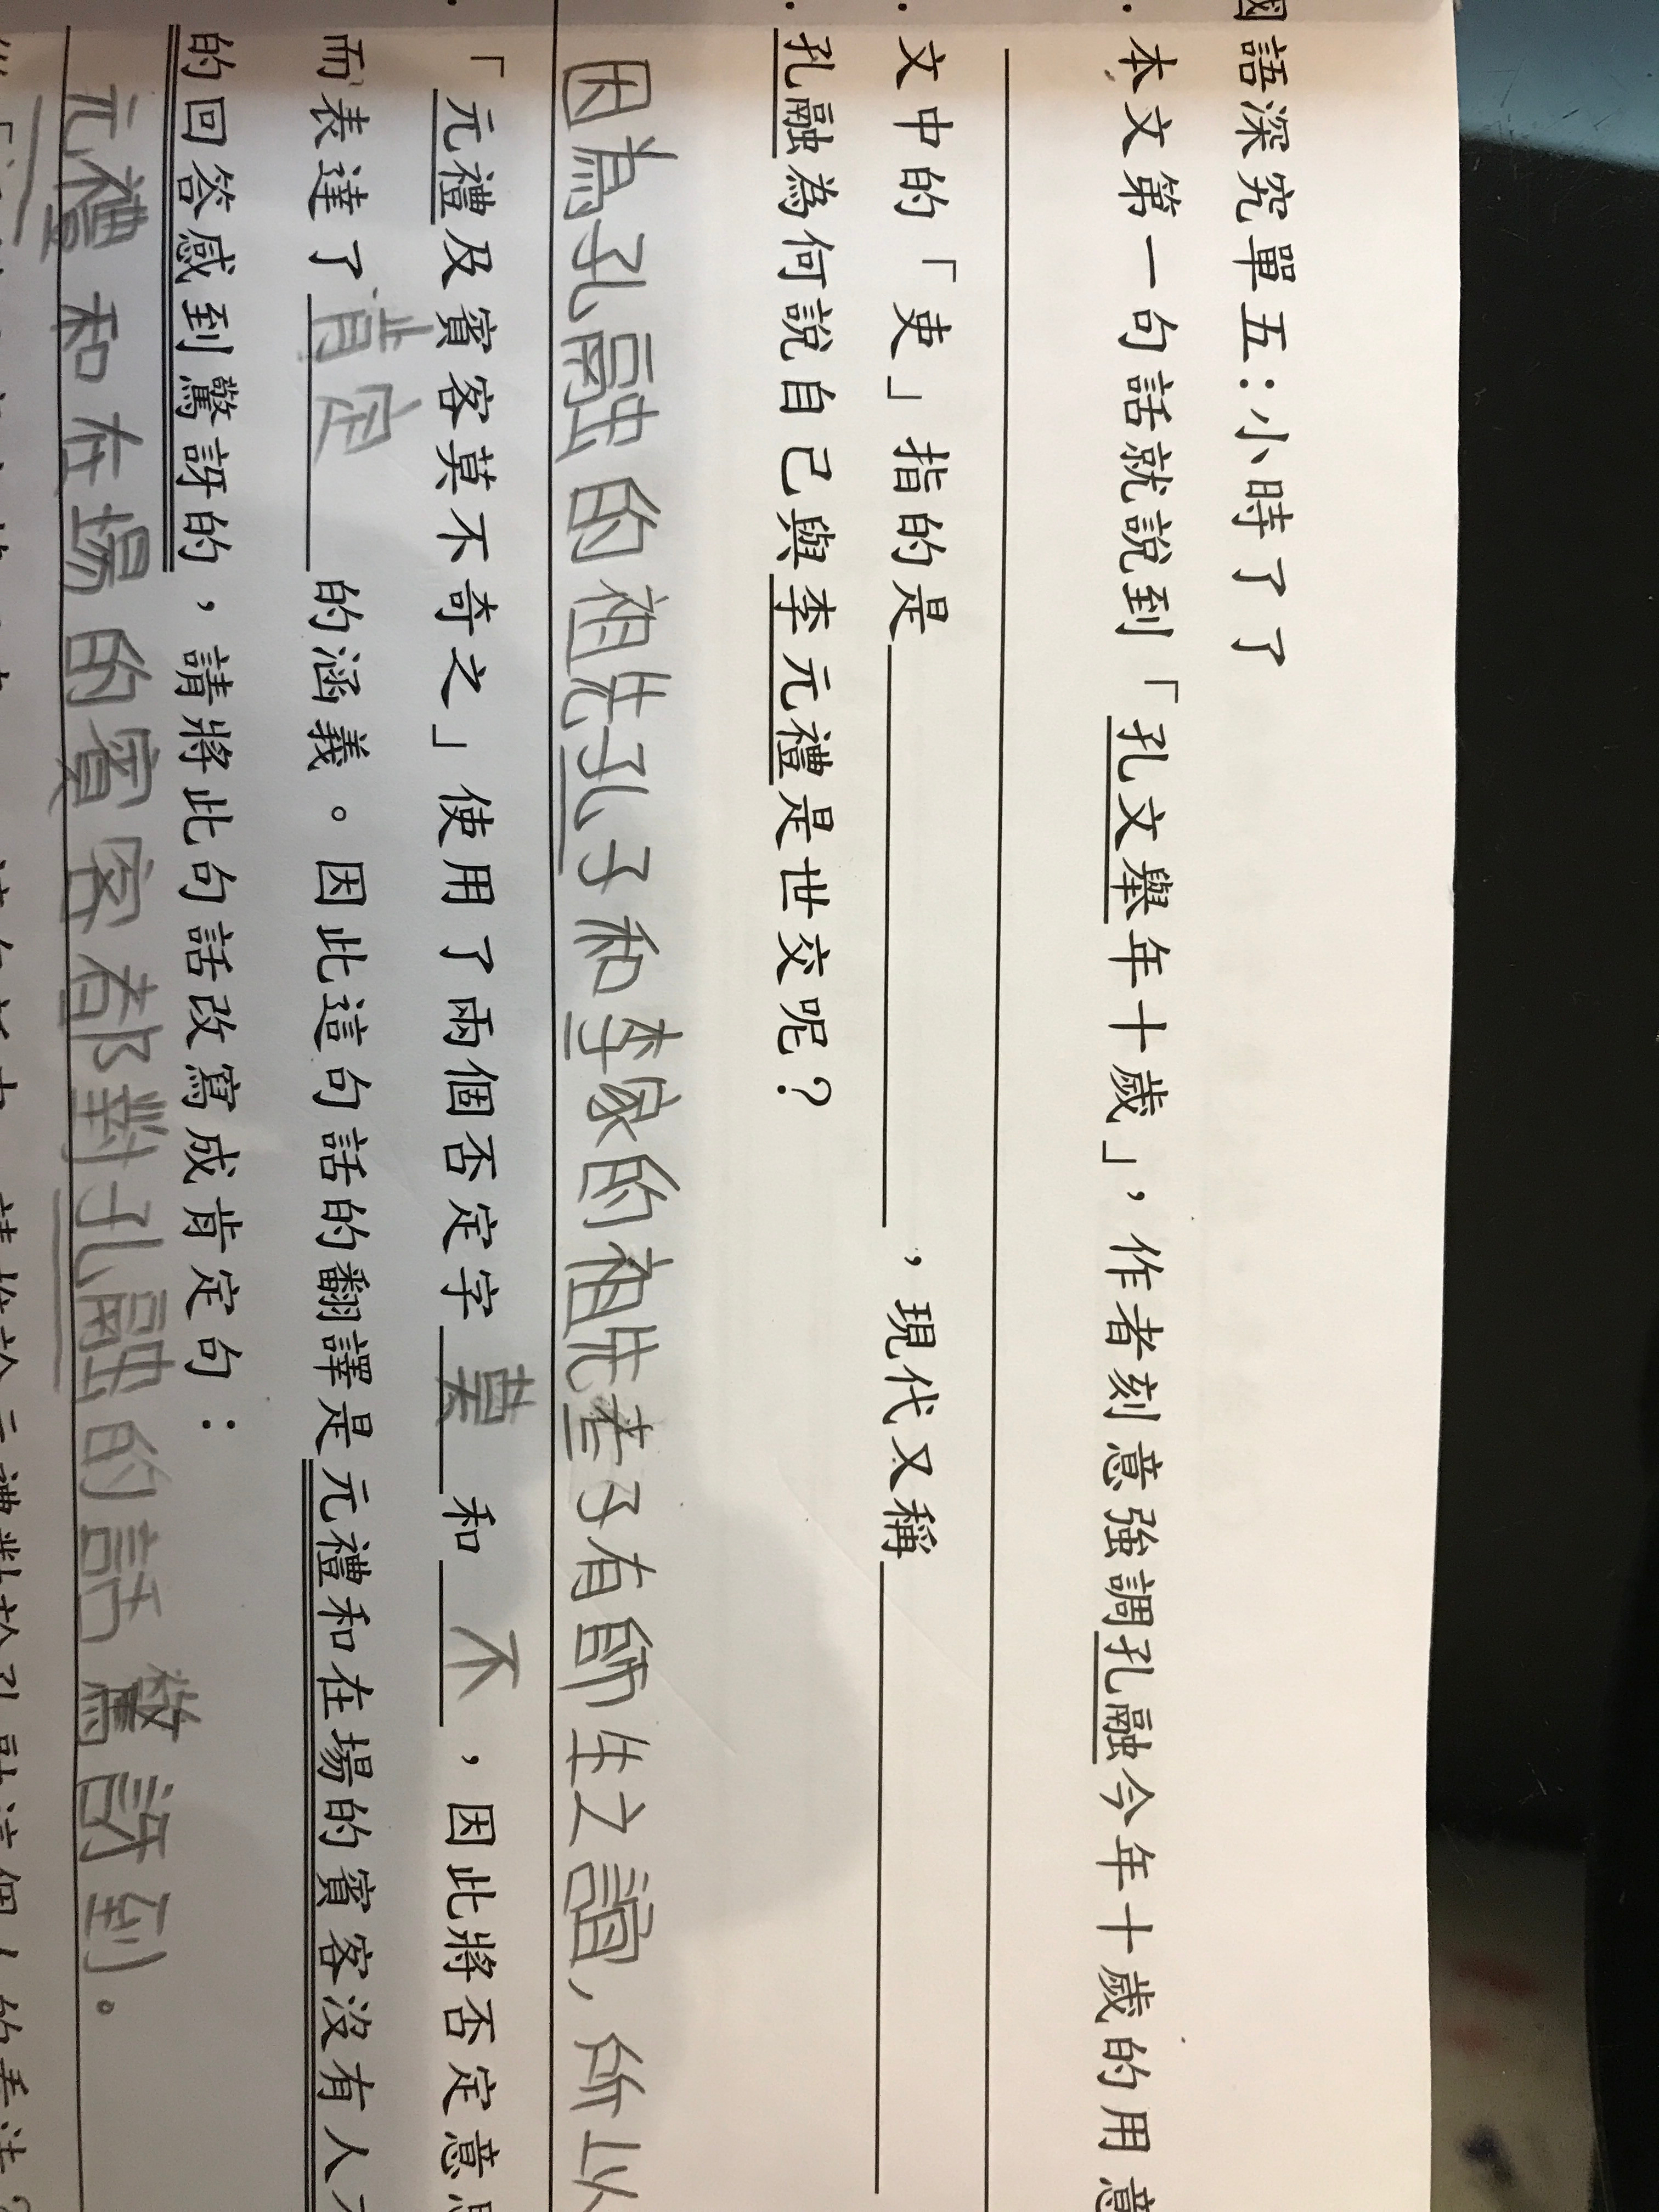 國語深究單五：小時了了
本文第一句話就說到「孔文舉年十歲」，作者刻意強調孔融今年十歲的用意
文中的「吏」指的是＿＿＿＿＿＿＿＿，現代又稱＿＿＿＿＿＿＿＿
孔融為何說自己與李元禮是世交呢？
因為孔融的祖先孔子和李家的祖先老子有師生之誼，所以
「元禮及賓客莫不奇之」使用了兩個否定字 莫 和 不 ，因此將否定意思
而表達了 肯定 的涵義。因此這句話的翻譯是元禮和在場的賓客沒有人不
的回答感到驚訝的，請將此句話改寫成肯定句：
元禮和在場的賓客都對孔融的話驚訝到。